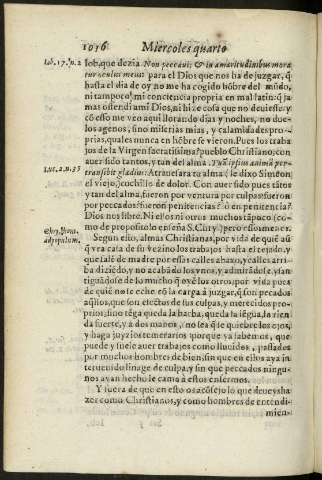 1016 Miercoles quarto
Iob. 17. n. 2
Iob, que dezia. Non peccaui; & in amaritudinibus mora
tur oculus meus para el Dios que nos ha de juzgar, q̃
hasta el dia de oy no me ha cogido hōbre del mũdo,
ni tampoco mi conciencia propria en mal latin: q̃ ja
mas ofendi a mi Dios, ni hize cosa que no deuiesse: y
cō esso me veo aqui llorando dias y noches, no due-
los agenos, sino miserias mias, y calamidades pro-
prias, quales nunca en hōbre se vieron. Pues los traba
jos de la Virgen sacratissima? pueblo Christiano, con
auer sido tantos, y tan del alma.
Luc. 2. n. 35
Tuã ipsius animã per-
transibit gladius: Atrauesara tu alma (le dixo Simeon
el viejo) cuchillo de dolor. Con auer sido pues tãtos
y tan del alma, fueron por ventura por culpas? fueron
por pecados? fueron penitencias? ò en penitencia?
Dios nos libre. Ni ellos ni otros muchos tãpoco (co-
mo de proposito lo enseña S. Chry.) pero esso
Chrys. Homi.
ad populum.
Segun ello, almas Christianas, por vida de què aũ
q̃ vea casa de su vezino los trabajos hasta el tejado, y
que salē de madre por essas calles abaxo, y calles arri
ba diziēdo, y no acabãdo los vnos, y admirãdose, y sãn
tiguandose de lo mucho q̃ oyē los otros; por vida pues
de què no le eche òs la carga à juzgar, q̃ son pecados
aq̃llos, que son efectos de sus culpas, y merecidos pro-
prios; sino tēga queda la barba, queda la lēgua, la rien
da fuerte, y a dos manos, no sea q̃ se quiebre los ojos,
y haga juyzios temerarios: porque ya sabemos, que
puede y suele auer trabajos como llouidos, passados
por muchos hombres de bien: sin que en ellos aya in-
teruenido linage de culpa, y sin que pecados ningu-
nos ayan hecho le cama à estos enfermos.
Y fuera de que en esto os acōsejo lo que deueys ha
zer como Christianos, y como hombres de entendi-
mien-